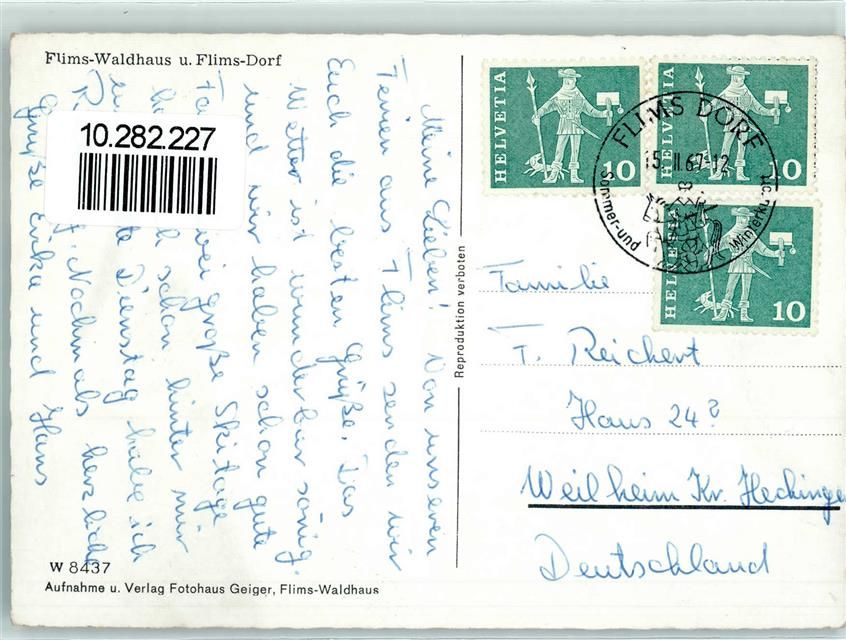 Flims-Waldhaus u. Flims-Dorf
Meine Lieben! Von unseren
Ferien aus Flims senden wir
Euch die besten Grüße. Das
Wetter ist wunderbar sonig.
und wir haben schon gute
große Skitage
schon hinter mir
Dienstag habe ich
Nochmals herzliche
Grüße Erika und Hans
10.282.227
W 8437
Aufnahme u. Verlag Fotohaus Geiger, Flims-Waldhaus
Reproduktion verboten
HELVETIA 10
HELVETIA 10
HELVETIA 10
FLIMS DORF
15.II.67-12
Sommer-und
Winterkurort
Familie
F. Reichert
Haus 24?
Weilheim Kr. Hechinge
Deutschland